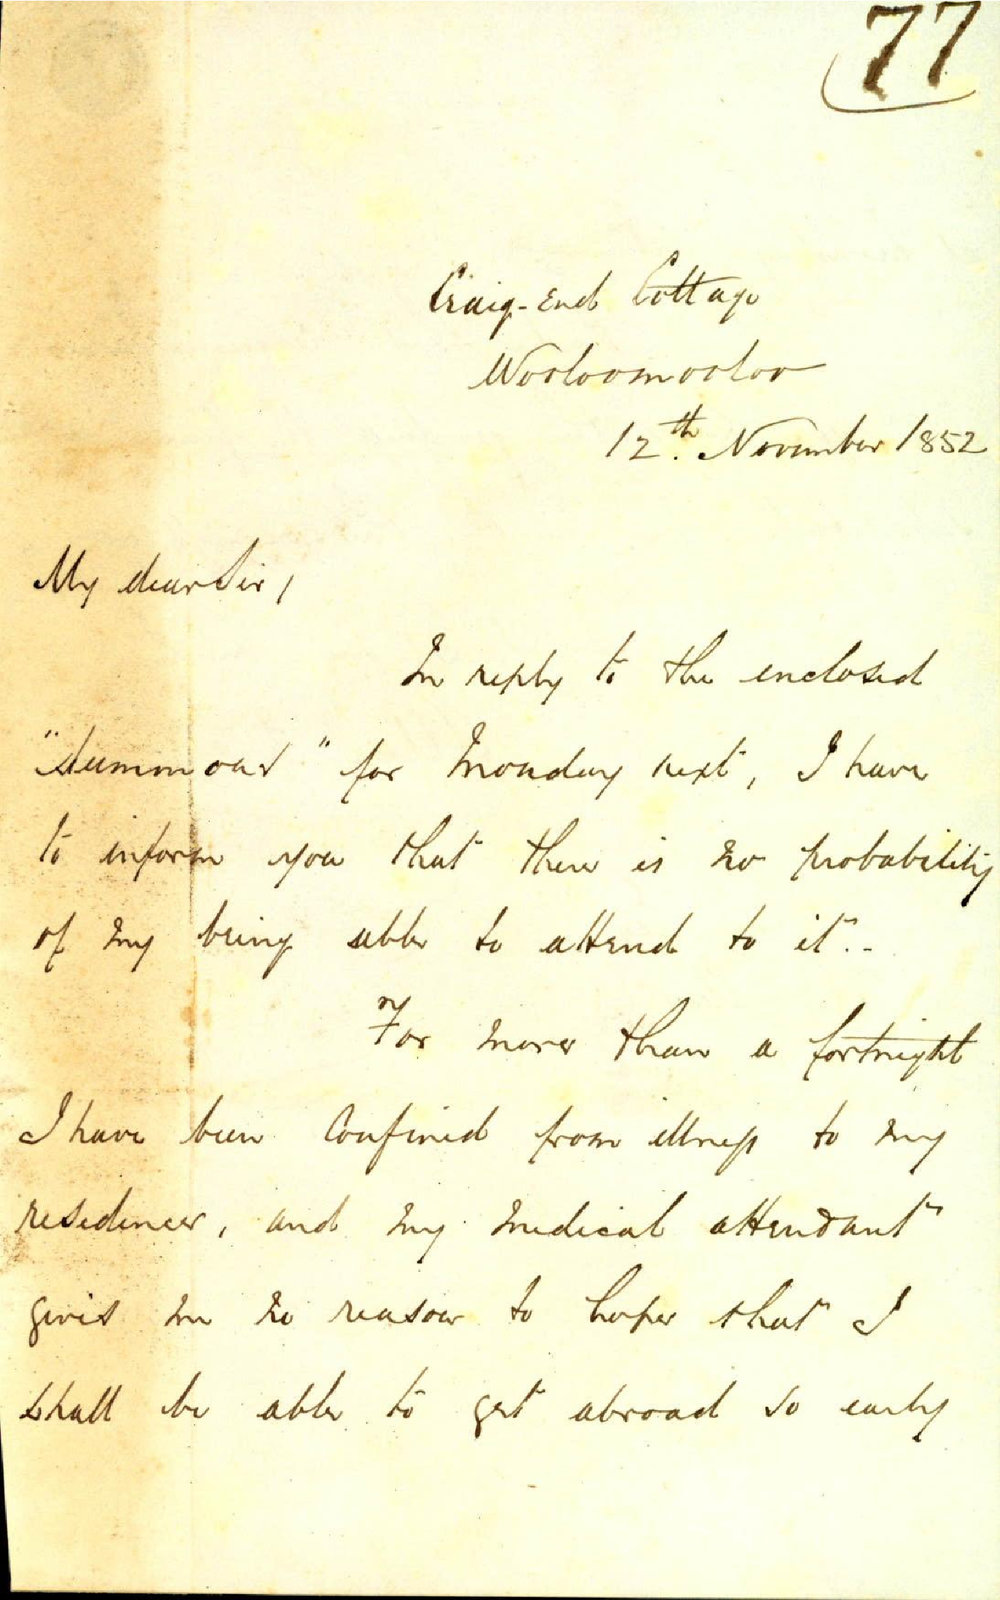 77
Craig-End Cottage
Wooloomooloo
12th. November 1852
My dear Sir,
In reply to the enclosed
"summons" for Monday next, I have
to inform you that there is no probability
of my being able to attend to it.-
For more than a fortnight
I have been confined from illness to my
residence, and my medical attendant
gives me no reason to hope that I
shall be able to get abroad so early